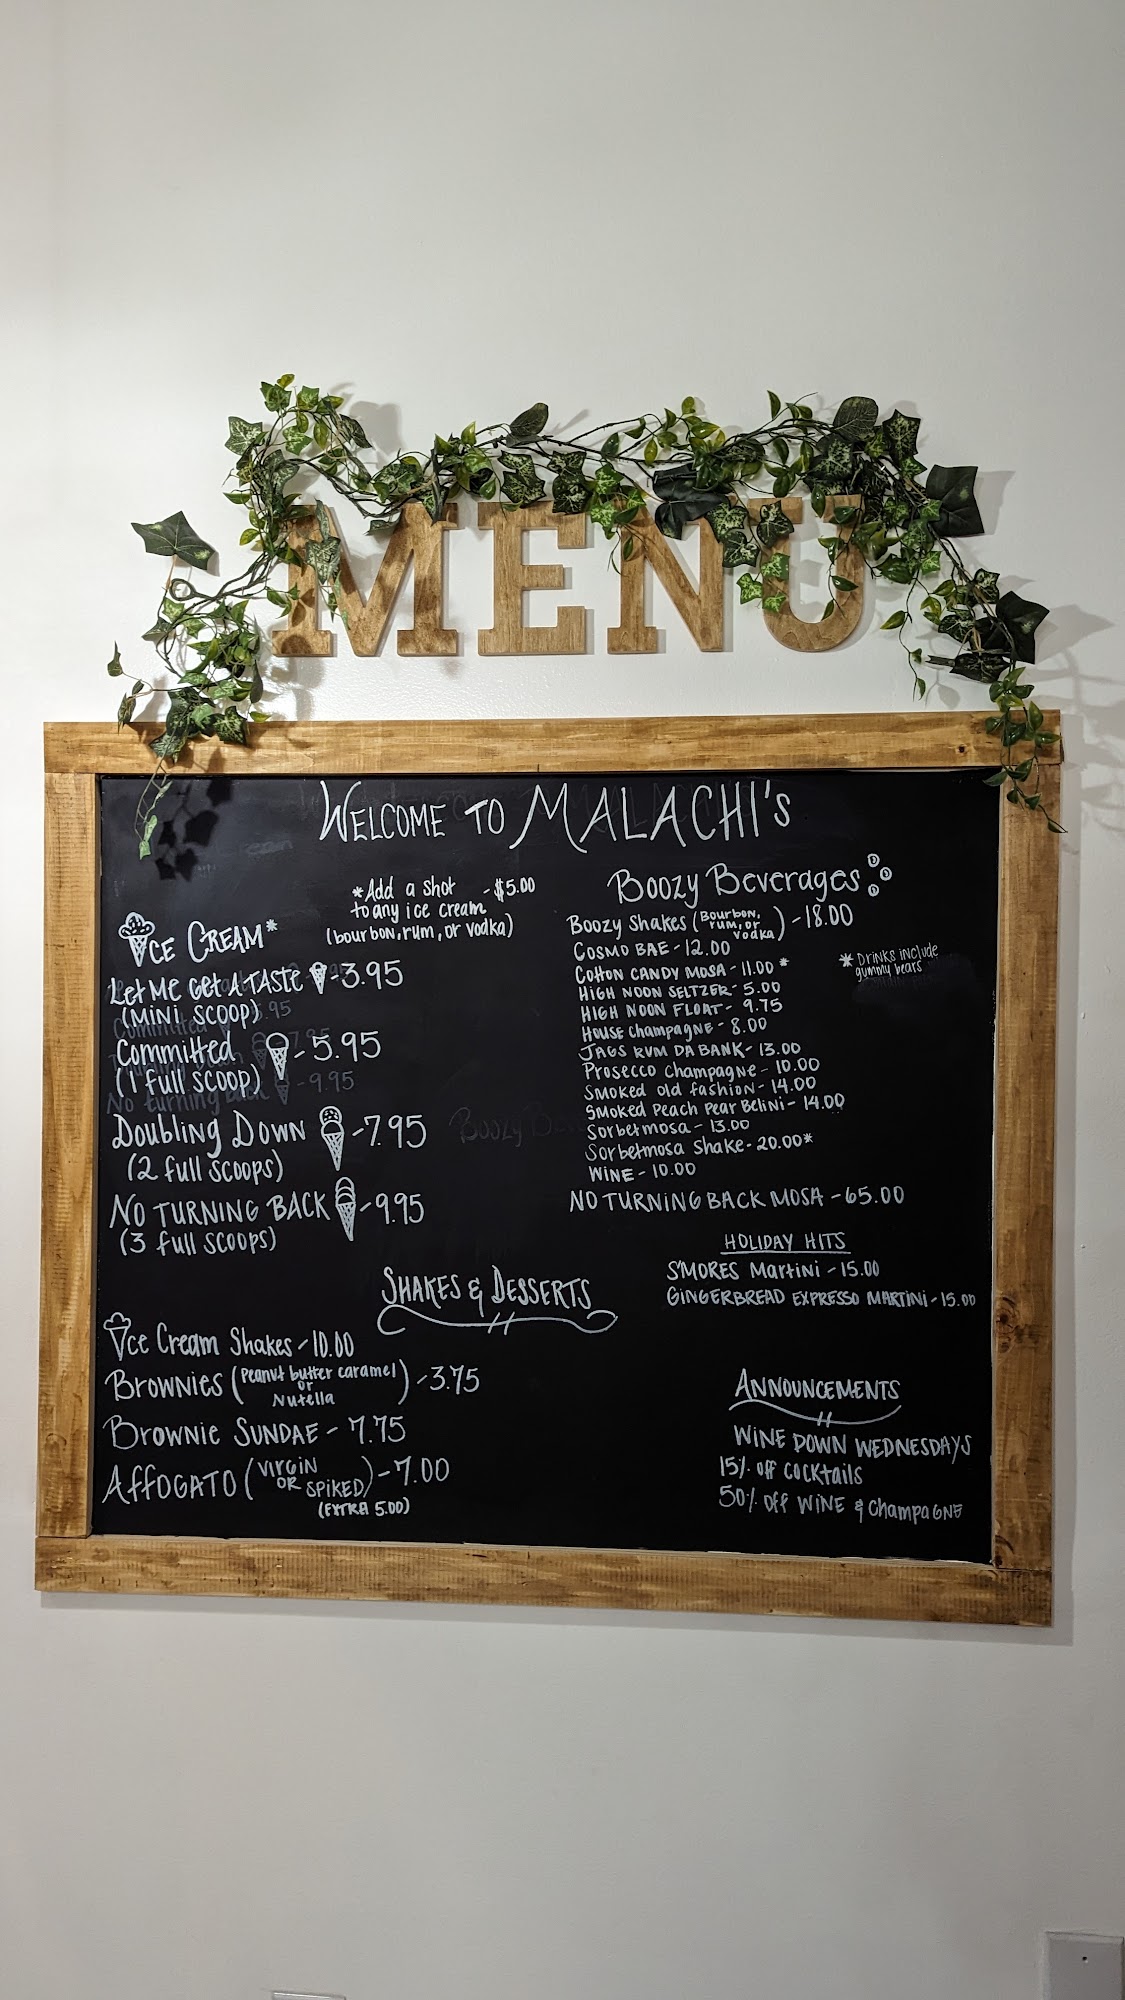 MENU
WELCOME TO MALACHI'S
*Add a shot - $5.00
to any ice cream
(bourbon, rum, or vodka)
ICE CREAM*
Let Me Get A TASTE - 3.95
(MINI SCOOP)
Committed - 5.95
(1 full scoop)
Doubling Down - 7.95
(2 full scoops)
No TURNING BACK - 9.95
(3 full scoops)
Boozy Beverages
Boozy Shakes (Bourbon, rum, or vodka) - 18.00
COSMO BAE - 12.00
Cotton CANDY MOSA - 11.00 *
* DRINKS include
gummy bears
HIGH NOON SELTZER - 5.00
HIGH NOON FLOAT - 9.75
House Champagne - 8.00
JAGS RUM DA BANK - 13.00
Prosecco Champagne - 10.00
Smoked old fashion - 14.00
Smoked Peach Pear Belini - 14.00
Sorbetmosa - 13.00
Sorbetmosa Shake - 20.00*
WINE - 10.00
NO TURNING BACK MOSA - 65.00
HOLIDAY HITS
S'MORES Martini - 15.00
GINGERBREAD EXPRESSO MARTINI - 15.00
SHAKES & DESSERTS
Ice Cream Shakes - 10.00
Brownies (Peanut butter caramel or Nutella) - 3.75
Brownie SUNDAE - 7.75
AFFOGATO (VIRGIN OR SPIKED) - 7.00
(EXTRA 5.00)
ANNOUNCEMENTS
WINE DOWN WEDNESDAYS
15% off cocktails
50% off WINE & Champagne